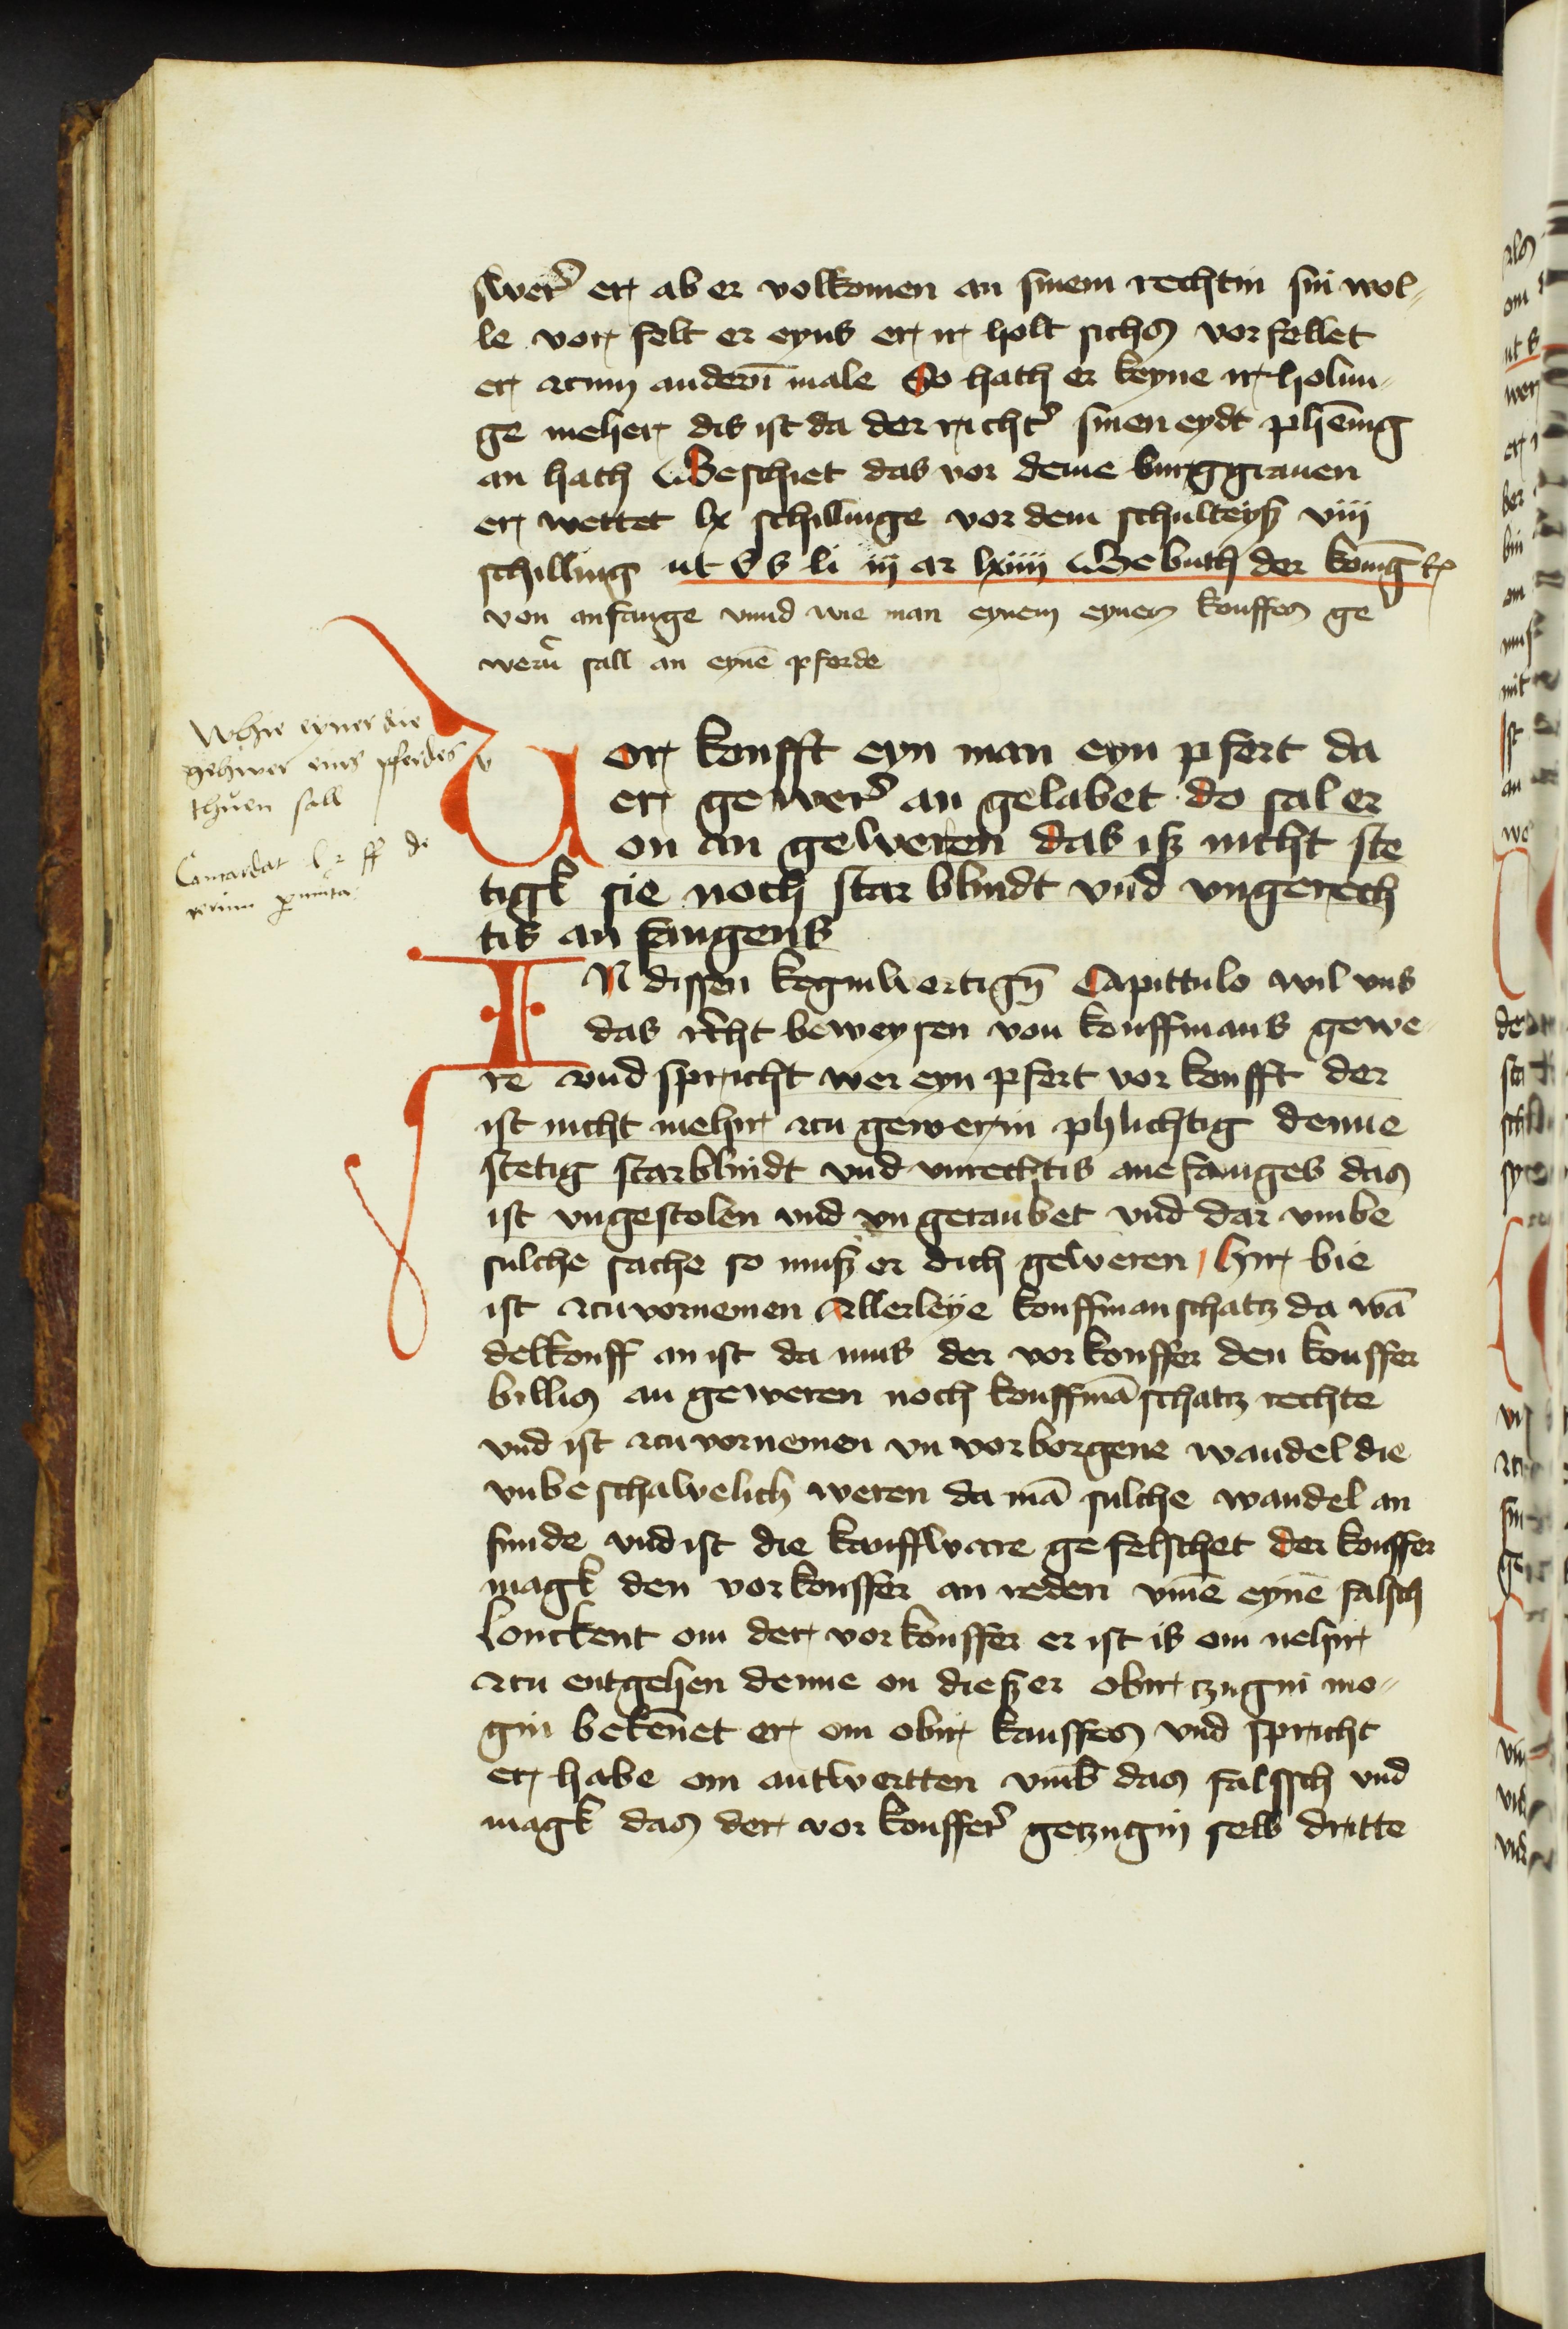 swer̉ er ab er volkomen an sinem rechtin sin wol-
le vor felt er eyns er ir holt sichs vorfellet
er zcum anderī male So hath er keyne ir holun-
ge meher dis ist da der richt̉ sinen eydt phēnig
an hath Geschiet das vor deme burggrauen
er wettet lx schillinge vor dem schulteyß viii
schilling ut ss li iij ar lxiiii Gebuth der konig̅
von anfange vnnd wie man eynem eynen kouffen ge
wern sall an eynē pferde
Whie eyner die
gehwer eins pferdes
thuen sall
Concordat l 2 ff de
rerum permuta
Vor koufft eyn man eyn pfert da
er gewer̉ an gelabet do sal er
on an geweren das iß nicht ste
tigk sie noch star blindt vnd vngerech
tis an fangens
IN dissen keginwertign̄ Capittulo wil vns
das recht beweysen von kouffmans gewe-
re vnd spricht wer eyn pfert vor koufft der
ist nicht mehir zcu gewerin phlichtig denne
stetig starblindt vnd vnrechtis anefanges das
ist vngestolen vnd vn geraubet vnd dar vmbe
sulche sache so muß er dich geweren / hir bie
ist zcuvornemen Allerleye kouffmanschatz da wā
delkouff an ist da mus der vorkouffer den kouffer
billis an geweren noch kouffmāschatz rechte
vnd ist zcuvornemen vn vorborgene wandel die
vnbeschawelich weren da mā sulche wandel an
funde vnd ist die kauffware gefelschet der kouffer
magk den vorkouffer an reden vmē eynē falsch
Louckent om der vorkouffer er ist is om nehir
zcu entgehen denne on dießer obir tzugin mo-
gin bekēnet er om obir kauffes vnd spricht
er habe om antwertten vmb das falssch vnd
magk das der vor kouffer̉ getzugin selb dritte